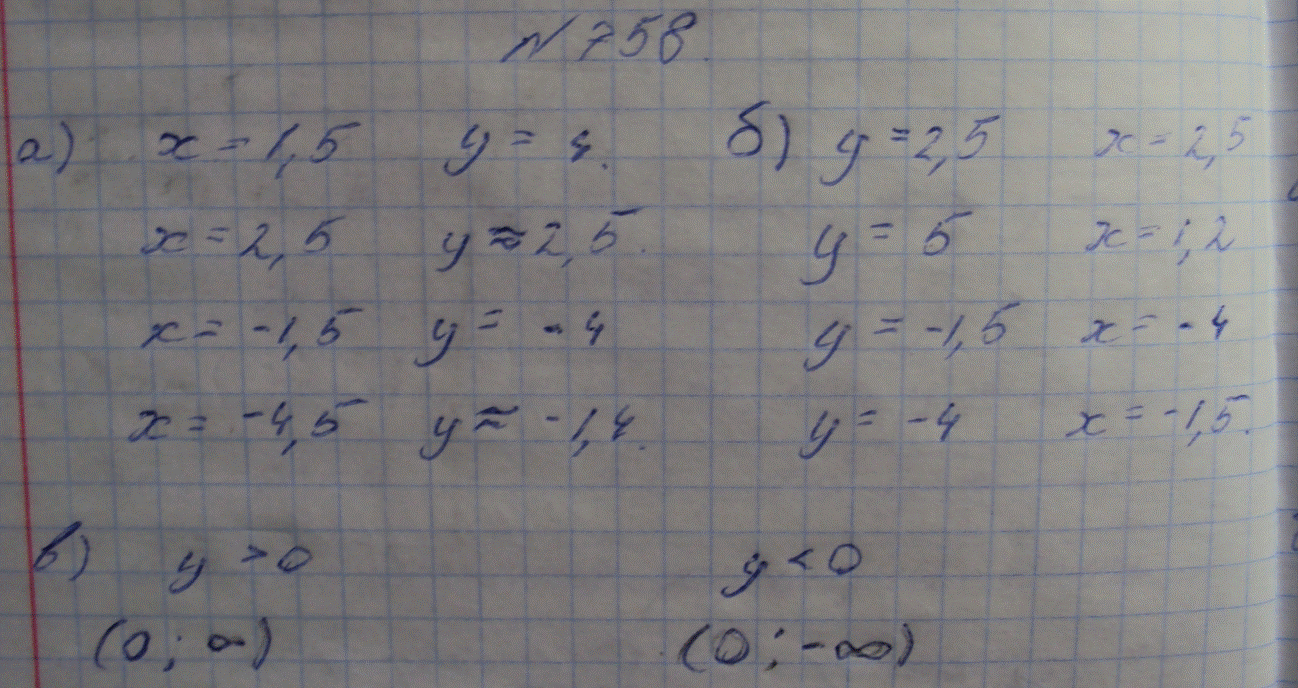 №758.
а) x = 1,5 y = 4. б) y = 2,5 x = 2,5
x = 2,5 y ≈ 2,5. y = 5 x = 1,2
x = -1,5 y = -4 y = -1,5 x = -4
x = -4,5 y ≈ -1,4. y = -4 x = -1,5.
в) y > 0 y < 0
(0; ∞) (0; -∞)